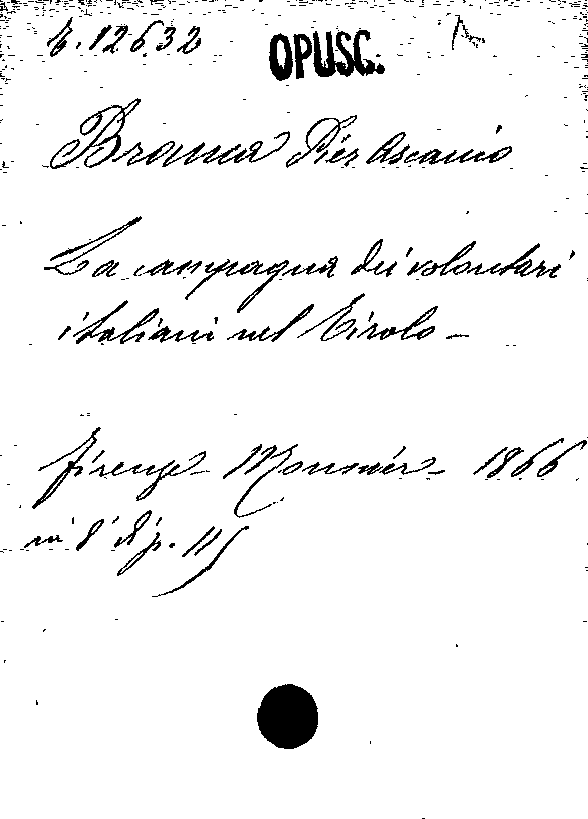 12632 OPUSC.
Branca Pier Ascanio
La campagna dei volontari
italiani nel Tirolo -
Firenze - Monnier - 1866
in 8° di p. 115